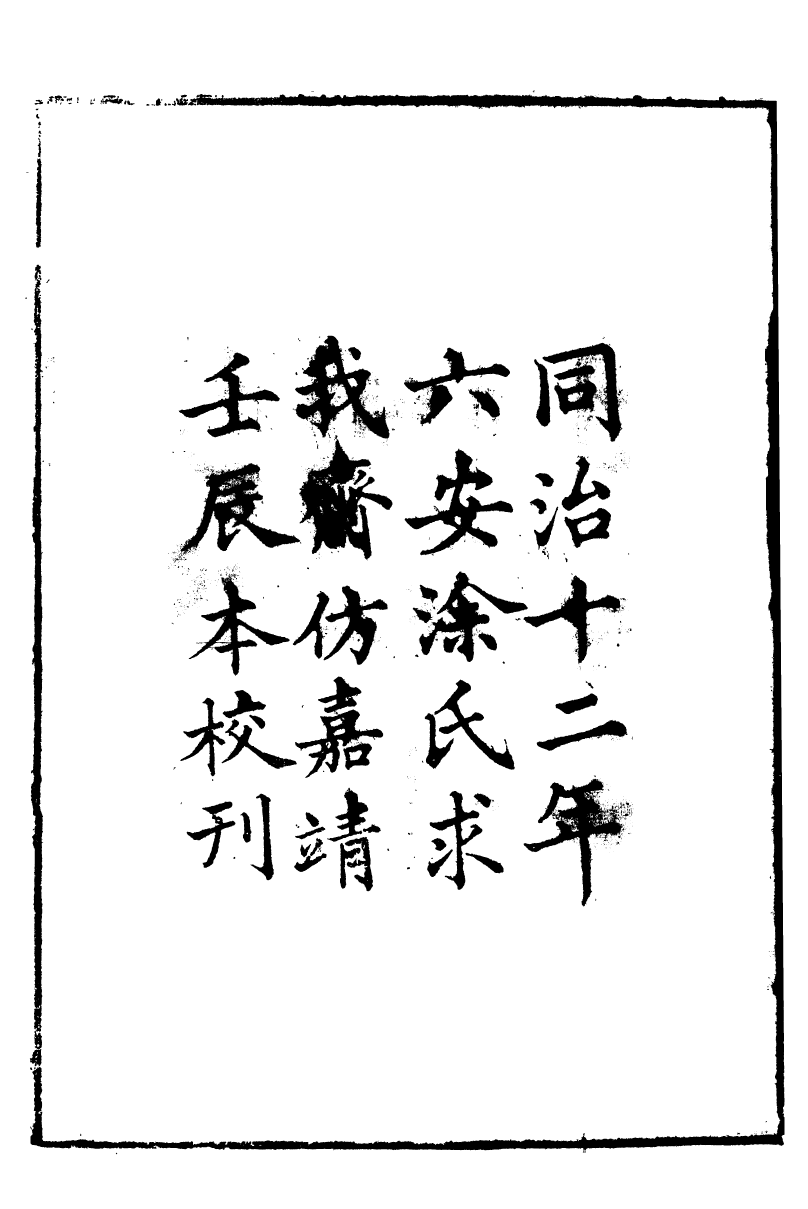 同治十二年
六安涂氏求
我齋仿嘉靖
壬辰本校刊